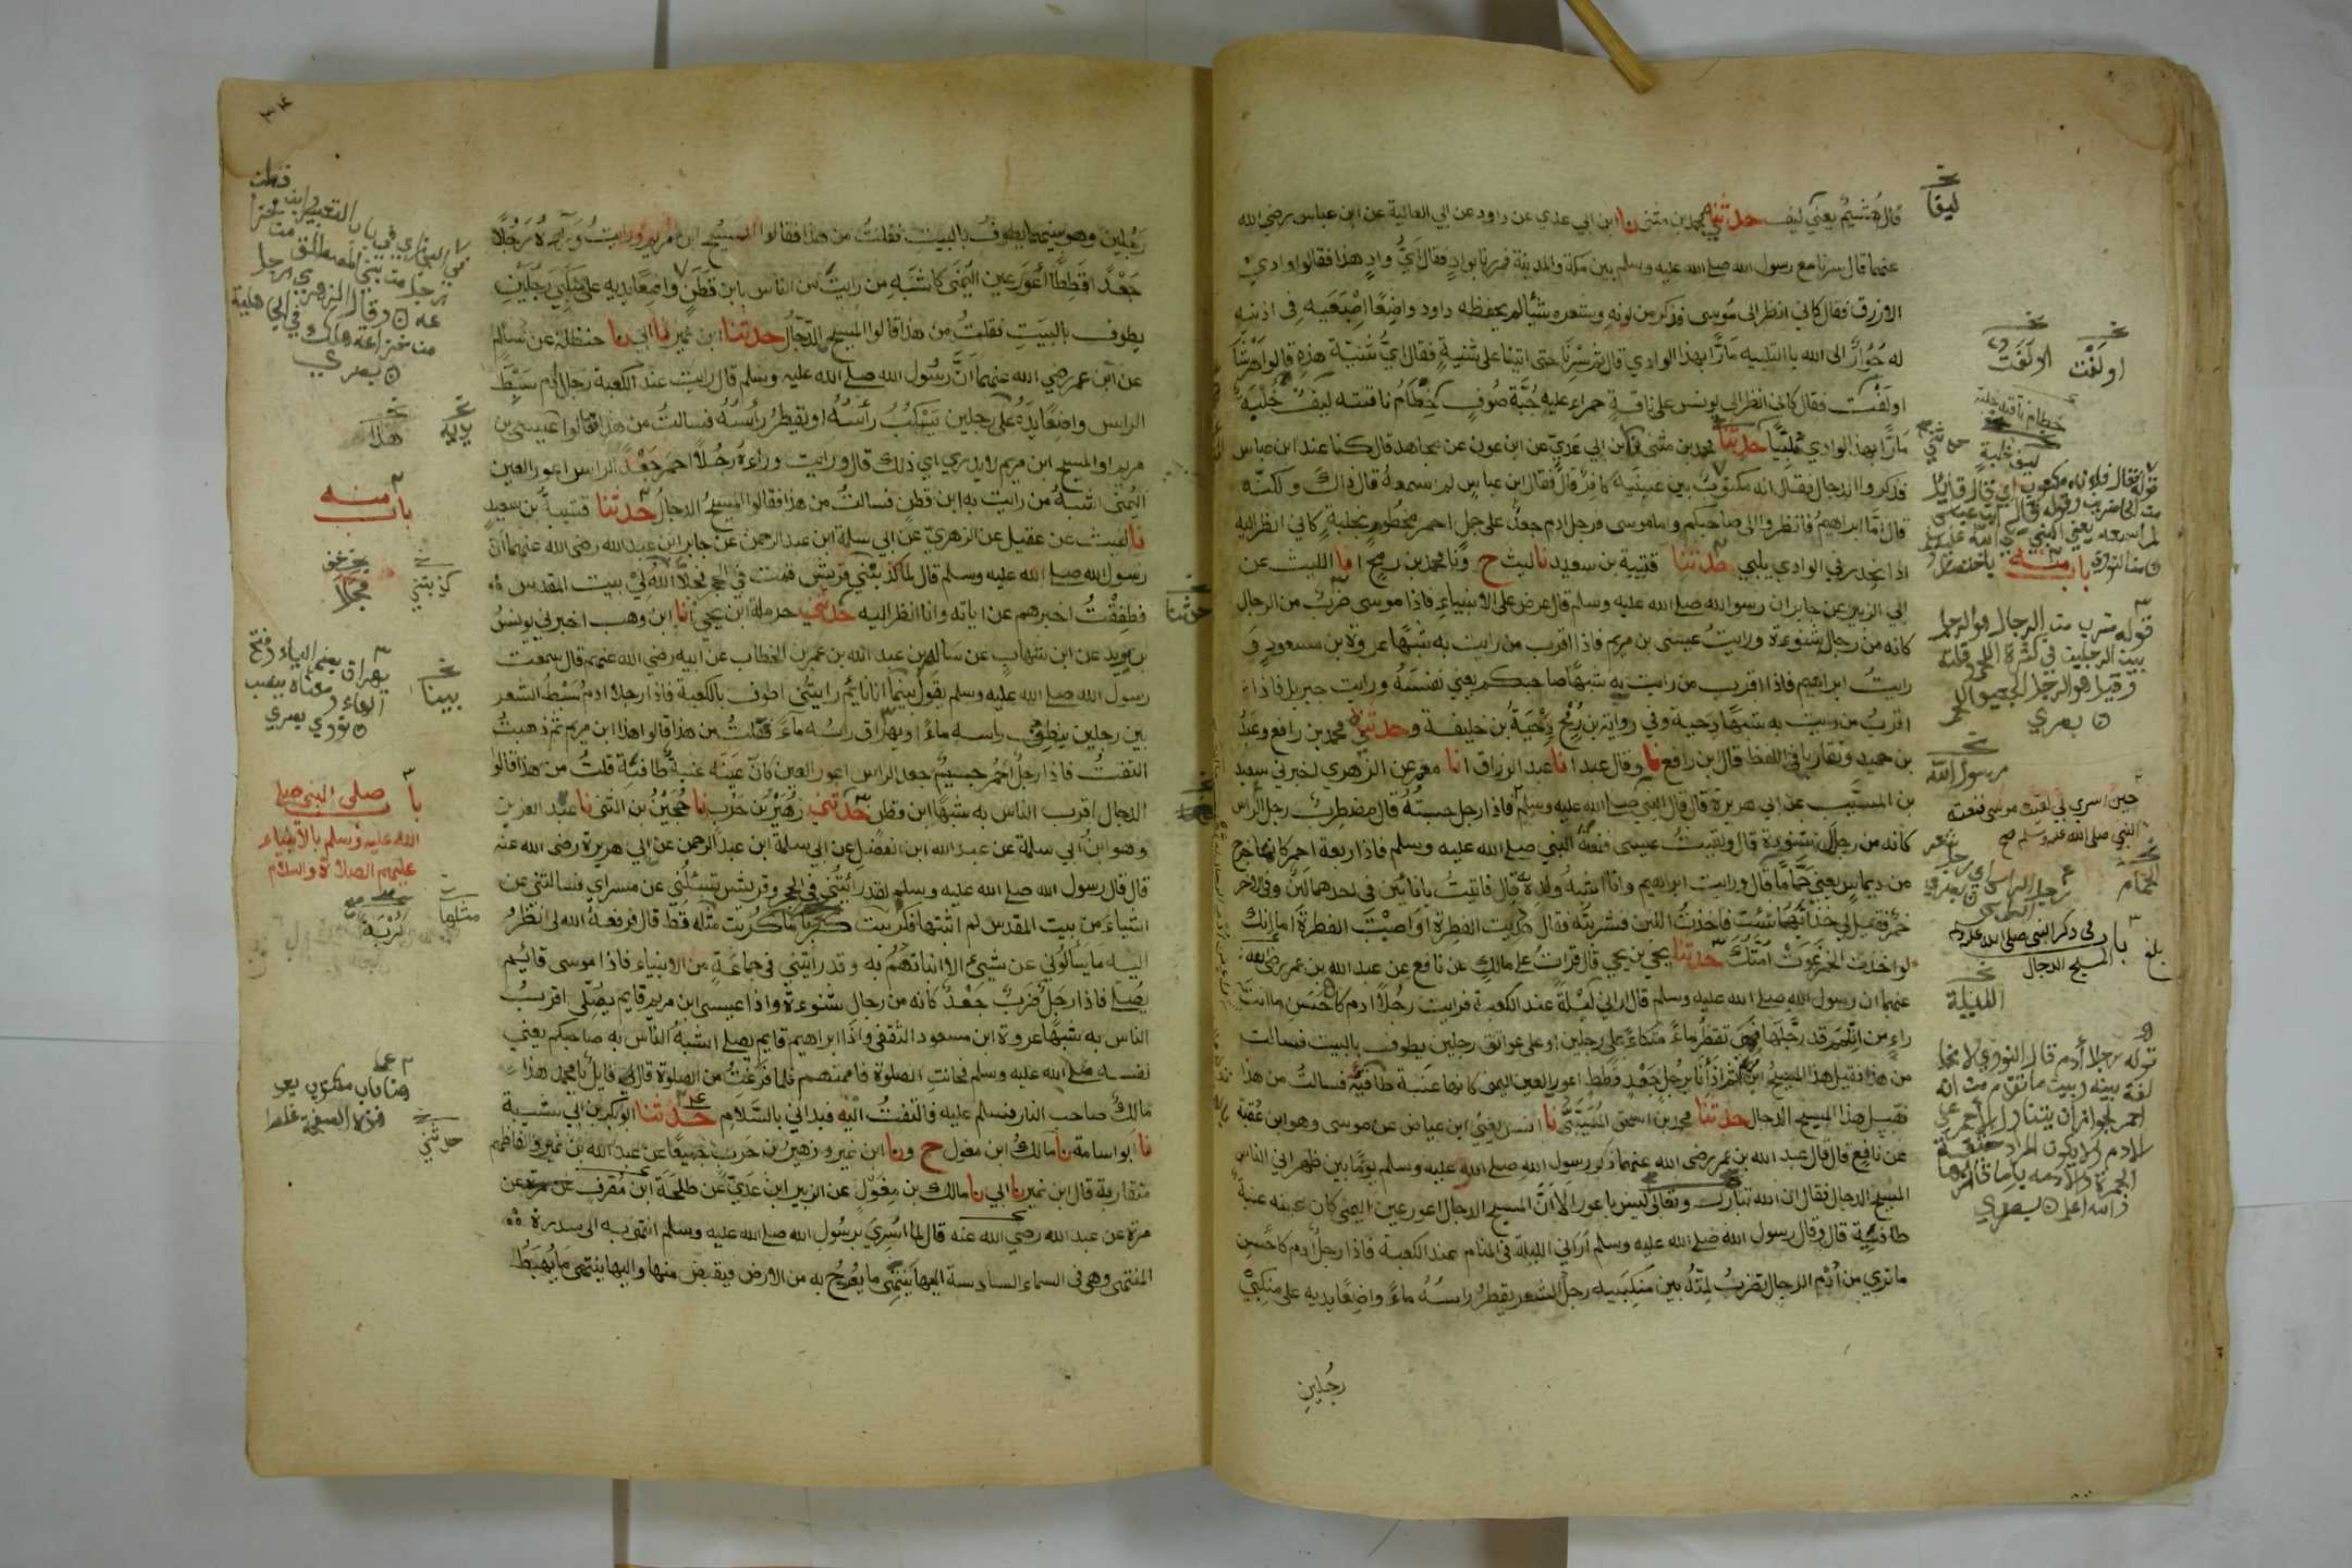 قال هُشيم يعني ليف حدثني محمد بن مثنى نا ابن ابي عدي عن داود عن ابي العالية عن ابن عباس رضي الله
عنهما قال سرنا مع رسول الله صلى الله عليه وسلم بين مكة والمدينة فمررنا بوادٍ فقال اَيُّ وادٍ هذا فقالوا وادي
الازرق فقال كاني انظر الى مُوسى فذكر من لونه وشعره شيئا لم يحفظه داود واضِعًا اِصْبَعَيه في اذنيه
له جُوَارٌ الى الله بالتلبيه مَارًّا بهذا الوادي قال ثم سِرْنا حتى اتينا على ثنيةٍ فقال ايُّ ثنيّة هذه قالوا هَرْشَا
او لَفْت فقال كاني انظر الى يونس على ناقةٍ حمراء عليه جُبَّة صُوفٍ خِطَامُ ناقته ليفٌ خُلْبَة
مَارًّا بهذا الوادي مُلَبّيًا حدثنا محمد بن مثنى نا ابن ابي عَدِيّ عن ابن عون عن مجاهد قال كنا عند ابن عباس
فذكروا الدجال فقال انه مكتوبٌ بين عينيه كافر قال فقال ابن عباس لم اسمعه قال ذاك ولكنّه
قال امّا ابراهيمُ فانظروا الى صاحبكم واما موسى فرجل ادم جعدٌ على جمل احمر مخطوم بخلبةٍ كاني انظر اليه
اذا انحدر في الوادي يلبي حدثنا قتيبة بن سعيد نا ليث ح ونا محمد بن رمح انا الليث عن
ابي الزبير عن جابر ان رسول الله صلى الله عليه وسلم قال عرض على الانبياء فاذا موسى ضربٌ من الرجال
كانه من رجال شنوءة ورايتُ عيسى بن مريم فاذا اقرب من رايت به شبهًا عروة بن مسعود و
رايتُ ابراهيم فاذا اقرب من رايت به شبهًا صاحبكم يعني نفسَهُ ورايت جبريل فاذا
اقربُ من رايت به شبهًا دِحية وفي رواية بن رُمْح دِحْيَةُ بن خليفة وحدثني محمد بن رافع وعَبْدُ
بن حميد وتقاربا في اللفظ قال ابن رافع نا وقال عبد انا عبد الرزاق انا معمر عن الزهري اخبرني سعيد
بن المسيّب عن ابي هريرة قال قال النبي صلى الله عليه وسلم فاذا رجل حسبتُهُ قال مضطربٌ رجل الراس
كانه من رجال شنوءة قال ولقيتُ عيسى فنعتهُ النبي صلى الله عليه وسلم فاذا ربعة احمر كانما خرج
من ديماسٍ يعني حَمَّامًا قال ورايت ابراهيم وانا اشبهُ ولَدِه به قال فاتيتُ باناءَين في احدهما لَبَنٌ وفي الاخر
خمرٌ فقيل لي خذ ايهُما شئت فاخذتُ اللبن فشربته فقال هُديت الفطرة او اصبْتَ الفطرة اما انك
لو اخذت الخمر غَوَتْ اُمّتُكَ حدثنا يحيى بن يحيى قال قراتُ على مالكٍ عن نافع عن عبد الله بن عمر رضي الله
عنهما ان رسول الله صلى الله عليه وسلم قال اراني لَيْلةً عند الكعبة فرايت رجُلًا ادم كاحْسَنِ ما انت
راءٍ من اللمم قد رجَّلَها فهي تقطُر ماءً متكئًا على رجلين او على عواتق رجلين يطوف بالبيت فسالت
من هذا فقيل هذا المسيحُ ابن مريم ثم اذا اَنا برجُلٍ جَعْدٍ قَطَطٍ اعور العين اليمنى كانها عنَبة طافيةٌ فسالتُ من هذا
فقيل هذا المسيح الدجال حدثنا محمد بن اسحق المُسَيَّبيُّ نا انس يعني ابن عياض عن موسى وهو ابن عُقبة
عن نافع قال قال عبد الله بن عمر رضي الله عنهما ذكر رسول الله صلى الله عليه وسلم يومًا بين ظهراني الناس
المسيح الدجال فقال ان الله تبارك وتعالى ليس باعور اَلا اَنَّ المسيح الدجال اعور عين اليمنى كان عينه عنبة
طافية قال وقال رسول الله صلى الله عليه وسلم اَراني الليلة في المنام عند الكعبة فاذا رجلٌ ادم كاحسن
ما ترى من اُدم الرجال تضربُ لِمّتُهُ بين مَنكبيه رجلُ الشعر يقطرُ راسُهُ ماءً واضِعًا يديه على منكِبَيْ
رجُلينِ
ليقا
او لَفْت
او لَفَت
خطام ناقته خلبة
ليف خلبة
باب منه
رسول الله
حين اسري بي لقيت موسى فنعته
النبي صلى الله عليه وسلم صح
الحمام
باب في ذكر النبي صلى الله عليه وسلم
المسيح الدجال
بلغ
الليلة
والله اعلم بصري
رجُلين وهو بينهما يطوفُ بالبيت فقلتُ من هذا فقالوا المسيحُ ابن مريم ورايتُ وراءه رَجُلًا
جَعْدًا قَطِطًا اَعْوَر عين اليُمنى كاشبَهِ من رايتُ من الناس بابن قَطَنٍ واضِعًا يديه على منكبي رجُلَيْنِ
يطوف بالبيَتِ فقلتُ من هذا قالوا المسيح الدّجّالُ حدثنا ابن نمير نا ابي نا حنظلة عن سالم
عن ابن عمر رضي الله عنهما اَنَّ رسُول الله صلى الله عليه وسلم قال رايت عند الكعبة رجلا ادم سَبْطَ
الراس واضعًا يَدَهُ على رجلين يَسْكُبُ رأسُهُ او يقطرُ رأسُهُ فسالتُ من هذا فقالوا عيسى بن
مريم او المسيح ابن مريم لا يدري اي ذلك قال ورايت وراءهُ رجُلًا احمر جَعْدَ الراس اعور العين
اليُمْنى اشبهُ من رايت به ابن قطنٍ فسالتُ من هذا فقالوا المسيحُ الدجالُ حدثنا قتيبةُ بن سعيدٍ
نا ليث عن عقيل عن الزهريّ عن ابي سلمة ابن عبد الرحمن عن جابر ابن عبد الله رضي الله عنهما ان
رسول الله صلى الله عليه وسلم قال لما كذّبتْني قريش قمت في الحجر فجلا الله لي بيت المقدس
فطفِقْتُ اخبرهم عن اياته وانا انظر اليه حدثني حرملة ابن يحيى انا ابن وهب اخبرني يونسُ
بن يزيد عن ابن شهابٍ عن سالم بن عبد الله بن عمر بن الخطاب عن ابيه رضي الله عنهم قال سمعت
رسول الله صلى الله عليه وسلم يقول بينما انا نايمٌ رايتُني اطوف بالكعبة فاذا رجلا ادم سَبْطُ الشعر
بين رجلين ينطِف راسه ماءً او يهراق راسُه ماءً فقلتُ من هذا قالوا هذا ابن مريم ثم ذهبتُ
التفتُ فاذا رجلٌ احمُر جسيمٌ جعد الراس اعور العين كانّ عينَه عنبةٌ طافيةٌ قلتُ من هذا قالوا
الدجال اقرب الناس به شبهًا ابن قطن حدثني زهَيْرُ بن حَرب نا حُجَيْنُ بن المثنى نا عبد العزيز
وهو ابن ابي سلمة عن عبد الله ابن الفضل عن ابي سلمة ابن عبد الرحمن عن ابي هريرة رضى الله عنه
قال قال رسول الله صلى الله عليه وسلم لقد رائتُني في الحجر وقريش تسئلُني عن مسراي فسالتني عن
اشياءَ من بيت المقدس لم اثبتها فكُربت كربًا ما كُربت مثله قط قال فرفعهُ الله لي انظرُ
اليه ما يسألوني عن شيئ الا انباتهُم به وقد رايتني في جماعةٍ من الانبياء فاذا موسى قائيم
يُصلّي فاذا رجُلٌ ضَربٌ جَعْدٌ كانه من رجال شنوءة واذا عيسى ابن مريم قايم يُصلّي اقربُ
الناس به شبهًا عروة ابن مسعود الثقفي واذا ابراهيم قايم يصلي اشبهُ الناس به صاحبكم يعني
نفسه صلى الله عليه وسلم فحانتِ الصلوة فاممتهم فلما فرَغتُ من الصلوة قال لي قايلٌ يا محمد هذا
مالكٌ صاحب النار فسلم عليه فالتفتُّ اليه فبداني بالسّلام حدثنا ابو بكر بن ابي شيبة
نا ابو اسامة نا مالكُ ابن مغول ح ونا ابن نمير وزهيرُ بن حَرب جميعًا عن عبد الله بن نمير والفاظهم
متقاربة قال ابن نمير نا ابي نا مالك بن مِغوَلٍ عن الزبير ابن عَديّ عن طلحَة ابن مُصَرفٍ عن
مرّة عن عبد الله رضي الله عنه قال لما اسُرِي برسُول الله صلى الله عليه وسلم انتهى به الى سدرة
المنتهى وهي في السماء السادسة اليها ينتهي ما يُعْرَجُ به من الارض فيقبض منها واليها ينتهي ما يُهبَطُ
هذا
يديه
باب منه
كذبتني
بينا
يهراق بضم الياء وفتح
الهاء ومعناه ينصب
نووي بصري
باب صلى النبي صلى
الله عليه وسلم بالانبياء
عليهم الصلاة والسلام
مثلها
كُرْبة
حدثني